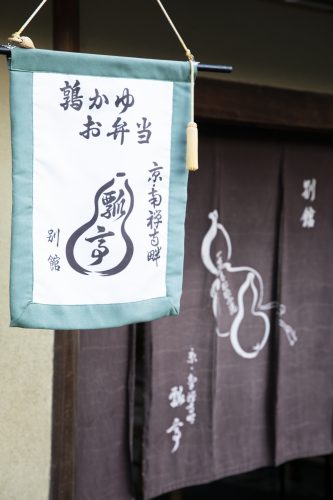 鶉かゆ
お弁当
京・南禅寺畔
瓢亭
別館
別館
京・南禅寺畔
瓢亭